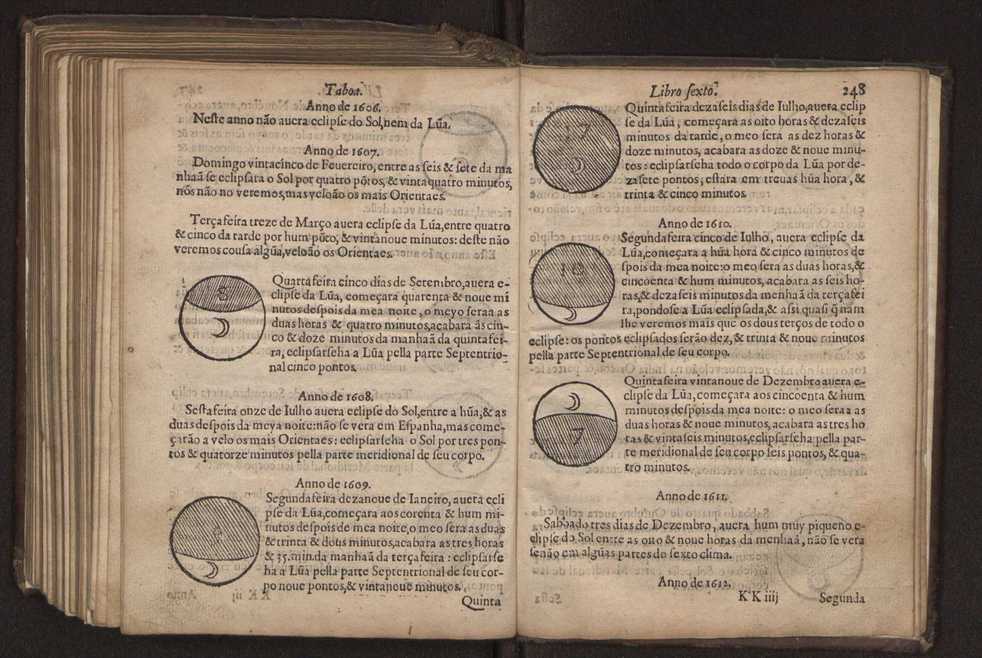 Taboa.
Anno de 1606.
Neste anno não auera eclipse do Sol, nem da Lũa.
Anno de 1607.
Domingo vintacinco de Feuereiro, entre as seis & sete da ma
nhaã se eclipsara o Sol por quatro põtos, & vinta quatro minutos,
nos não no veremos, mas veloão os mais Orientaes.
Terça feira treze de Março auera eclipse da Lũa, entre quatro
& cinco da tarde por hum põto, & vinta noue minutos: deste não
veremos cousa algũa, veloão os Orientaes.
8
Quarta feira cinco dias de Setembro, auera e-
clipse da Lũa, começara quarenta & noue mi
nutos despois da mea noite, o meyo sera a as
duas horas & quatro minutos, acabara ãs cin-
co & doze minutos da manhaã da quinta fei-
ra, eclipsarseha a Lũa pella parte Septentrio-
nal cinco pontos.
Anno de 1608.
Sesta feira onze de Iulho auera eclipse do Sol, entre a hũa, & as
duas despois da meya noite: não se vera em Espanha, mas come-
çarão a velo os mais Orientaes: eclipsarseha o Sol por tres pon-
tos & quatorze minutos pella parte meridional de seu corpo.
Anno de 1609.
Segunda feira dezanoue de Ianeiro, auera ecli
pse da Lũa, começara aos corenta & hum mi-
nutos despois de mea noite, o meo sera as duas
& trinta & dous minutos, acabara as tres horas
& 35. min. da manhaã da terça feira: eclipsarse
ha a Lũa pella parte Septentrional de seu cor-
po noue pontos, & vinta noue minutos.
K K iij
Quinta
Libro sexto.
248
17
Quinta feira dezaseis dias de Iulho, auera eclip
se da Lũa, começara as oito horas & dezaseis
minutos da tarde, o meo sera as dez horas &
doze minutos, acabara as doze & noue minu-
tos: eclipsarseha todo o corpo da Lũa por de-
zasete pontos, estara em treuas hũa hora, &
trinta & cinco minutos.
Anno de 1610.
10
Segunda feira cinco de Iulho, auera eclipse da
Lũa, começara a hũa hora & cinco minutos de
spois da mea noite: o meo sera as duas horas, &
cincoenta & hum minutos, acabara as seis ho-
ras, & dezaseis minutos da menhaã da terça fei
ra, pondose a Lũa eclipsada, & assi quasi q̃ nam
lhe veremos mais que os dous terços de todo o
eclipse: os pontos eclipsados serão dez, & trinta & noue minutos
pella parte Septentrional de seu corpo.
7
Quinta feira vintanoue de Dezembro auera e-
clipse da Lũa, começara aos cincoenta & hum
minutos despois da mea noite: o meo sera a as
duas horas & noue minutos, acabara as tres ho
ras & vintaseis minutos, eclipsarseha pella par-
te meridional de seu corpo seis pontos, & qua-
tro minutos.
Anno de 1611.
Sabbado tres dias de Dezembro, auera hum muy piqueno e-
clipse do Sol entre as oito & noue horas da menhaã, não se vera
senão em algũas partes do sexto clima.
Anno de 1612.
K K iiij
Segunda